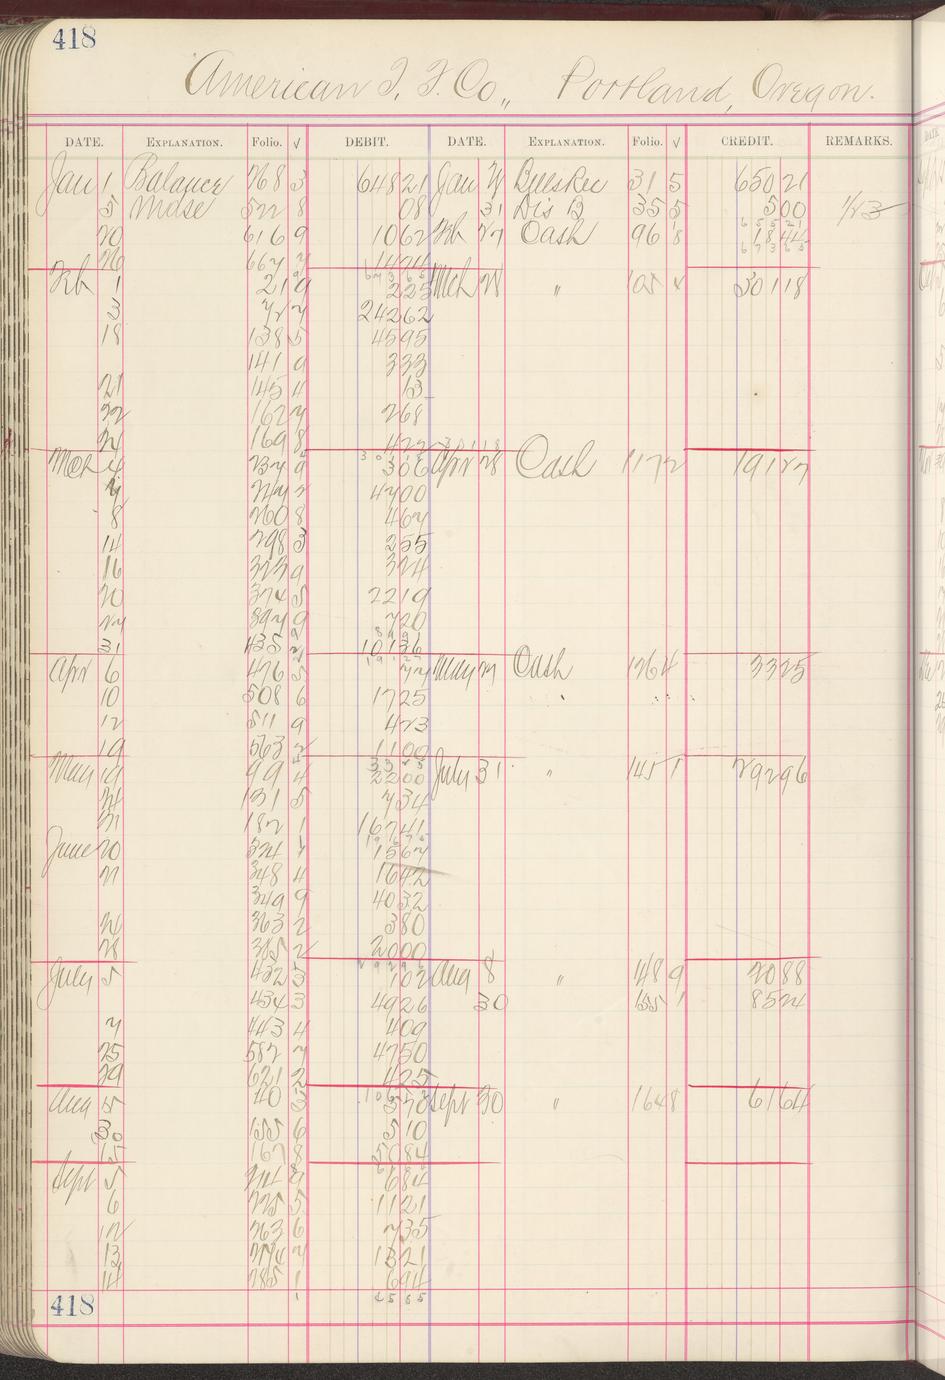 418
American T. F. Co., Portland, Oregon.
DATE. EXPLANATION. Folio. √ DEBIT. DATE. EXPLANATION. Folio. √ CREDIT. REMARKS.
Jan 1 Balance 768 3 648 21 Jan Bills Rec 31 5 650 21
5 Mdse 522 8 08 31 Dis B 35 5 5 00 1/23
20 616 9 10 62 Feb 27 Cash 96 8 18 44
26 667 7 14 74
Feb 1 21 9 2 25 Mch 28 " 105 301 18
3 72 7 242 62
18 138 5 45 95
141 9 3 33
21 145 4 13
22 162 7 2 68
24 169 8 4 22
Mch 4 237 9 3 06 Apr 28 Cash 117 2 191 27
7 247 2 47 00
8 260 8 4 67
14 298 3 2 55
16 323 9 3 24
20 374 5 22 19
27 397 9 7 20
31 435 2 101 36
Apr 6 476 5 77 May 27 Cash 126 4 33 25
10 508 6 17 25
12 511 9 4 23
19 563 2 11 00
May 19 99 4 22 00 July 31 " 145 1 292 96
24 131 5 7 34
31 182 1 167 41
June 20 324 7 15 67
21 348 4 16 42
349 9 40 32
24 363 2 3 80
28 385 2 20 00
July 5 432 3 1 02 Aug 8 " 148 9 20 88
434 3 49 26 30 155 1 85 24
7 443 4 4 09
25 582 7 47 50
29 621 2 4 25
Aug 5 40 3 5 70 Sept 30 " 164 8 61 64
30 155 6 5 10
15 167 8 50 84
Sept 5 214 9 6 84
6 225 5 11 21
12 263 6 7 35
13 274 7 13 21
14 285 1 6 94
45 65
418